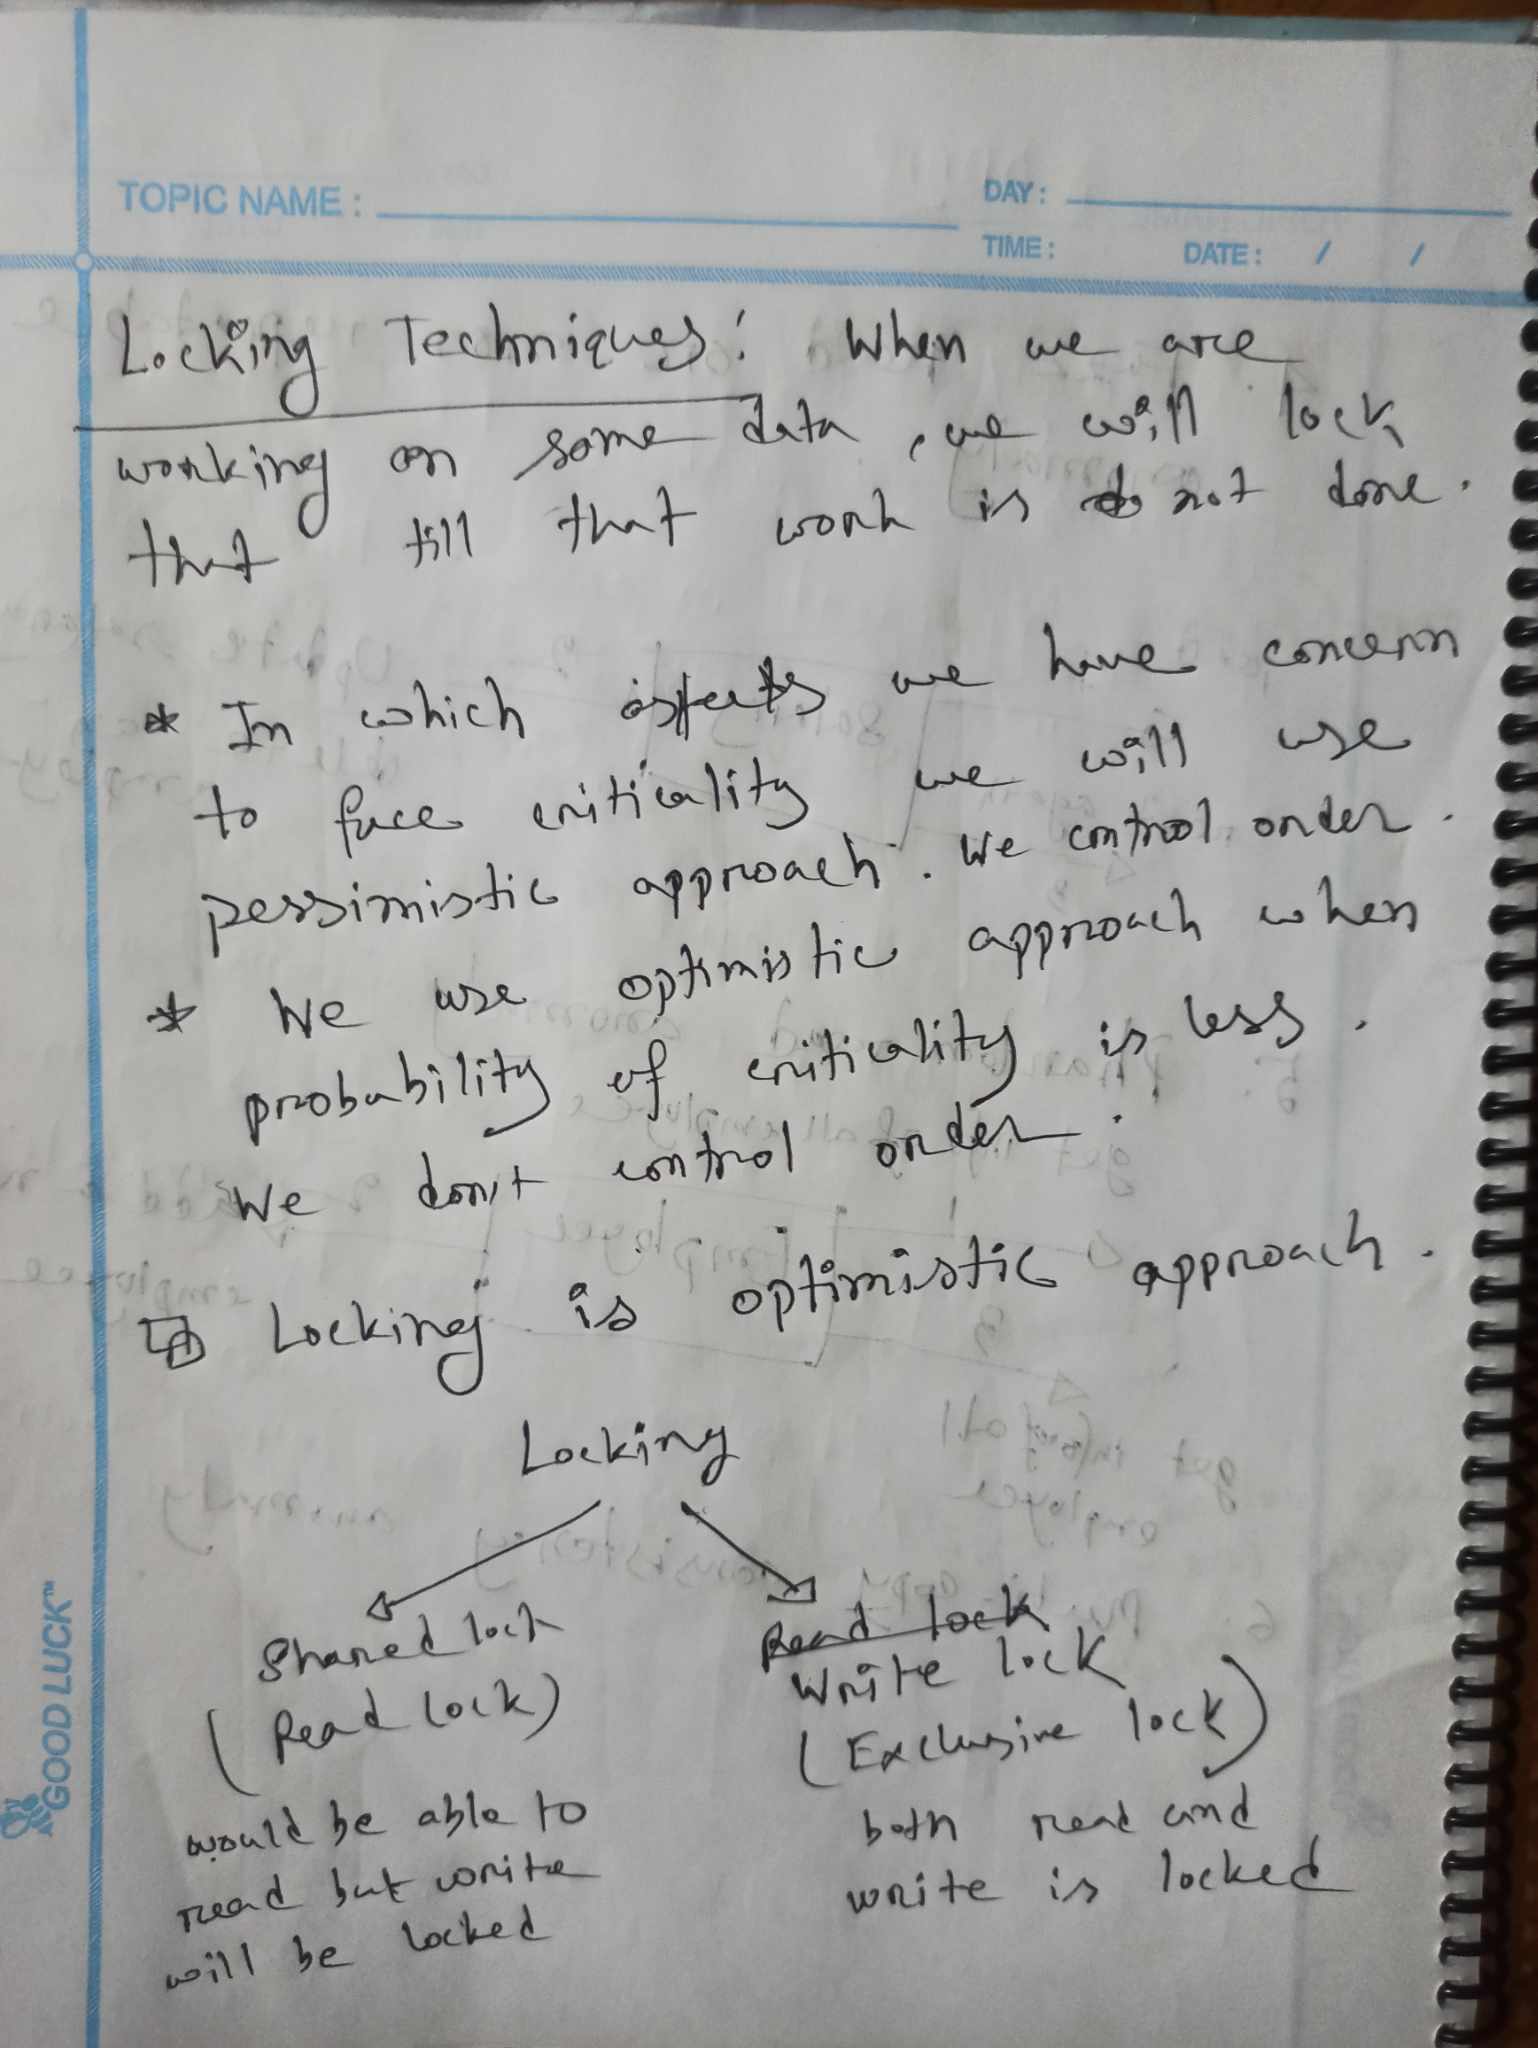 TOPIC NAME :
DAY :
TIME :
DATE : / /
Locking Techniques: When we are
working on some data, we will lock
that till that work is not done.
* In which aspects we have concern
to face criticality we will use
pessimistic approach. We control order.
* We use optimistic approach when
probability of criticality is less.
We don't control order.
Locking is optimistic approach.
Locking
Shared lock
(Read lock)
would be able to
read but write
will be locked
Read lock
Write lock
(Exclusive lock)
both read and
write is locked
GOOD LUCK™